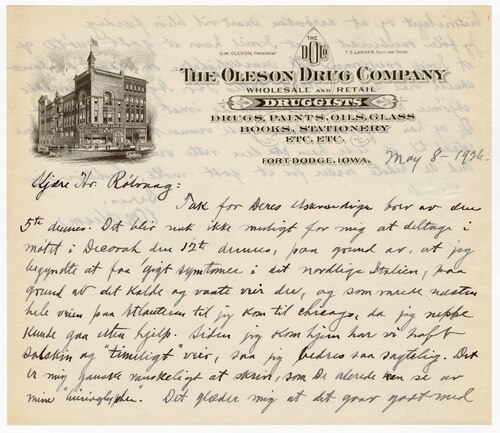 O.M. OLESON, PRESIDENT
THE
DOCo
T.S. LARSEN, SECY AND TREAS
THE OLESON DRUG COMPANY
WHOLESALE AND RETAIL
DRUGGISTS
DRUGS, PAINTS, OILS, GLASS
BOOKS, STATIONERY
ETC. ETC.
FORT DODGE, IOWA, May 8 - 1926
Kjære Hr. Rölvaag:
Tak for Deres elskværdige brev av den
5te dennes. Det blir nok ikke muligt for mig at deltage i
mötet i Decorah den 12te dennes, paa grund av, at jeg
begyndte at faa "gigt symtomer" i det nordlige Italien, paa
grund av det kalde og vaate veir der, og som varede næsten
hele veien paa Atlanteren til jeg kom til chicago, da jeg neppe
kunde gaa uten hjelp. Siden jeg kom hjem har vi haft
solskin og "timiligt" veir, saa jeg bedres saa sagtelig. Det
er mig ganske vanskeligt at skrive, som De alerede kan se av
mine "hieroglypher. Det glæder mig at det gaar godt med